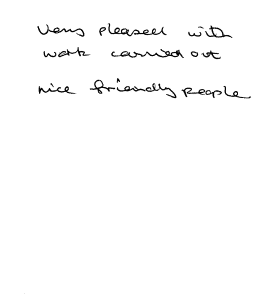 Very pleased with
work carried out
nice friendly people